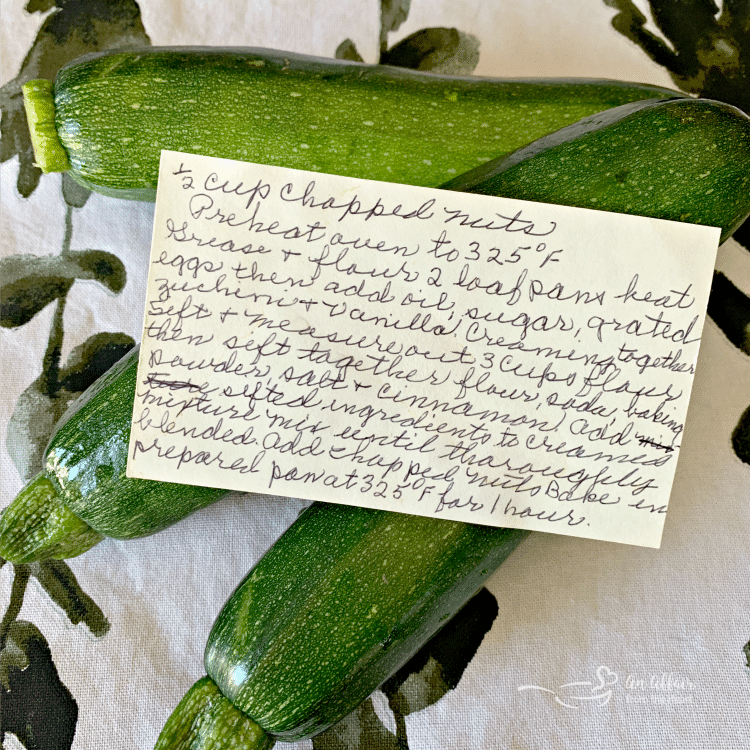 ½ cup chopped nuts
Preheat oven to 325°F
Grease + flour 2 loaf pans heat
eggs then add oil, sugar, grated
zuchini + vanilla creaming together
Sift + measure out 3 cups flour,
then sift together flour, soda, baking
powder, salt + cinnamon, add
sifted ingredients to creamed
mixture mix until thoroughly
blended. add chopped nuts Bake in
prepared pan at 325°F for 1 hour.
An Affair